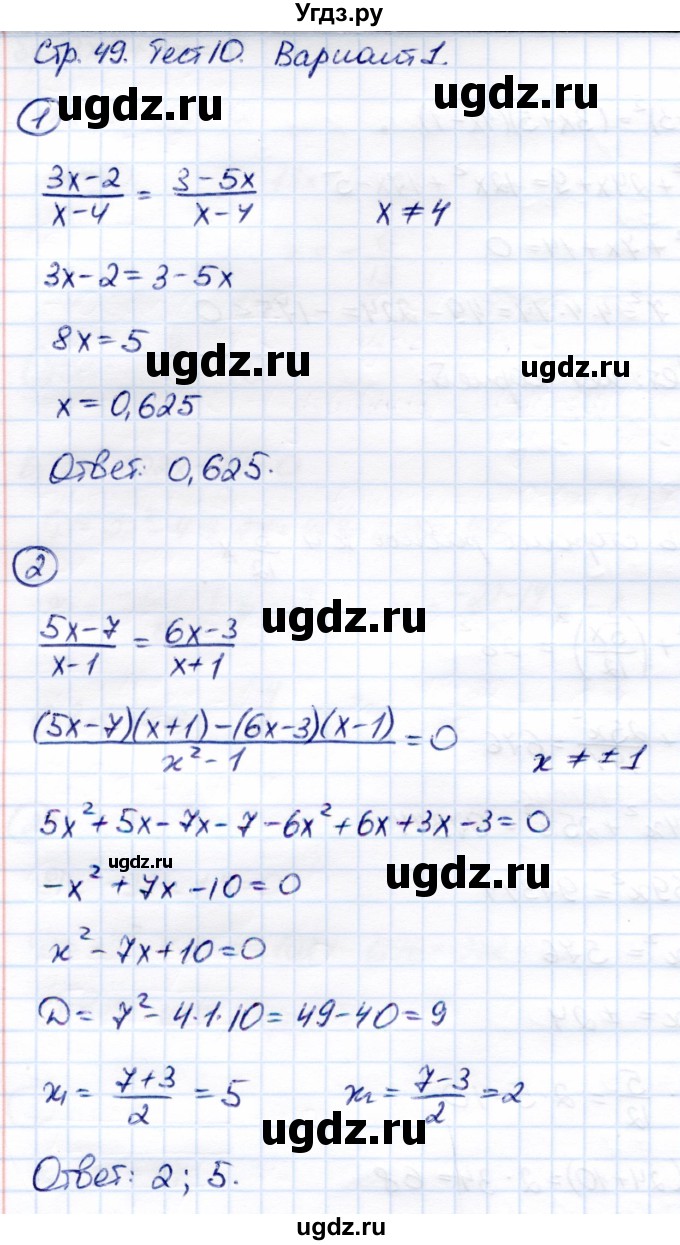 Угдз.ру
Стр. 49. Тест 10. Вариант 1.
ugdz.ru ugdz.ru
1
(3x-2)/(x-4) = (3-5x)/(x-4) x ≠ 4
3x-2=3-5x
8x=5
ugdz.ru ugdz.ru
x=0,625
Ответ: 0,625.
2
ugdz.ru
(5x-7)/(x-1) = (6x-3)/(x+1)
((5x-7)(x+1)-(6x-3)(x-1))/(x²-1) = 0 x ≠ ±1
5x²+5x-7x-7-6x²+6x+3x-3=0
ugdz.ru ugdz.ru
-x²+7x-10=0
x²-7x+10=0
D= 7²-4·1·10=49-40=9
x₁ = (7+3)/2 = 5 x₂ = (7-3)/2 = 2
ugdz.ru
Ответ: 2; 5.
ugdz.ru